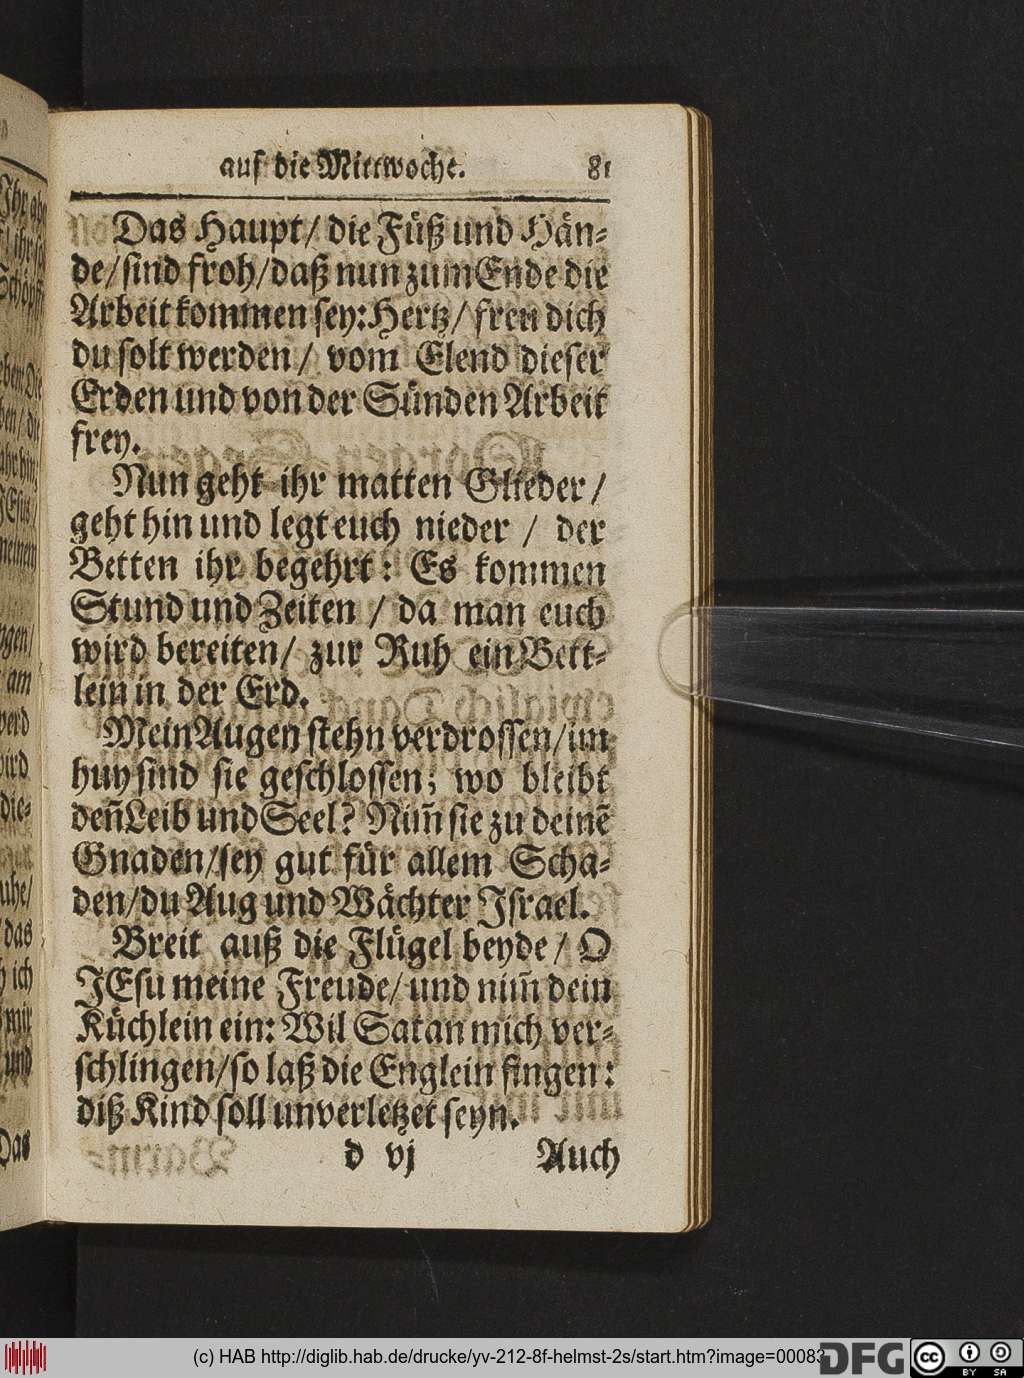 auf die Mittwoche. 81
Das Haupt / die Füß und Hän-
de / sind froh / daß nun zum Ende die
Arbeit kommen sey: Hertz / freu dich
du solt werden / vom Elend dieser
Erden und von der Sünden Arbeit
frey.
Nun geht ihr matten Glieder /
geht hin und legt euch nieder / der
Betten ihr begehrt: Es kommen
Stund und Zeiten / da man euch
wird bereiten / zur Ruh ein Bett-
lein in der Erd.
Mein Augen stehn verdrossen / im
huy sind sie geschlossen; wo bleibt
deñ Leib und Seel? Nim̃ sie zu deinẽ
Gnaden / sey gut für allem Scha-
den / du Aug und Wächter Israel.
Breit auß die Flügel beyde / O
JEsu meine Freude / und nim̃ dein
Küchlein ein: Wil Satan mich ver-
schlingen / so laß die Englein singen:
diß Kind soll unverletzet seyn.
d vj Auch
(c) HAB http://diglib.hab.de/drucke/yv-212-8f-helmst-2s/start.htm?image=00083
DFG
cc BY SA